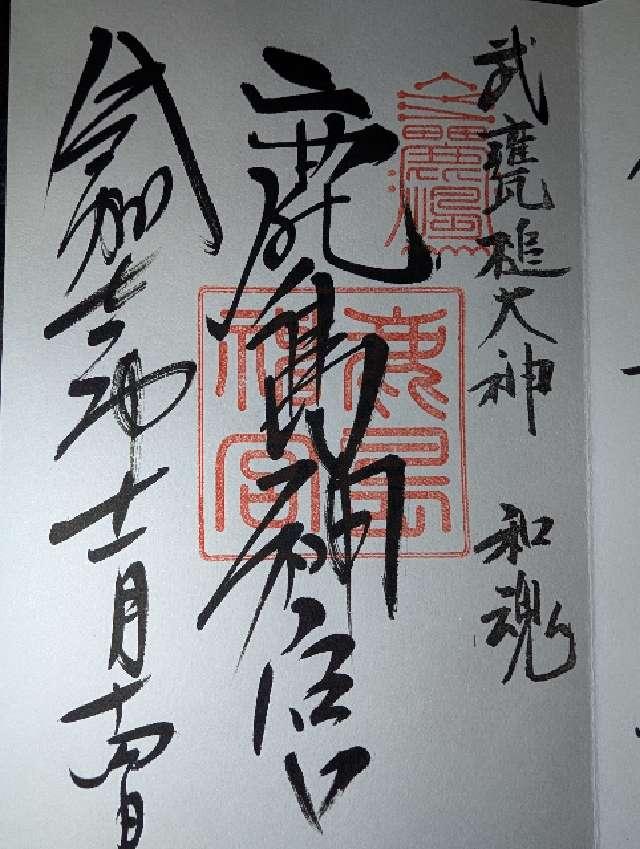 武甕槌大神 和魂
鹿島神宮
鹿島
神宮
令和年十一月十日